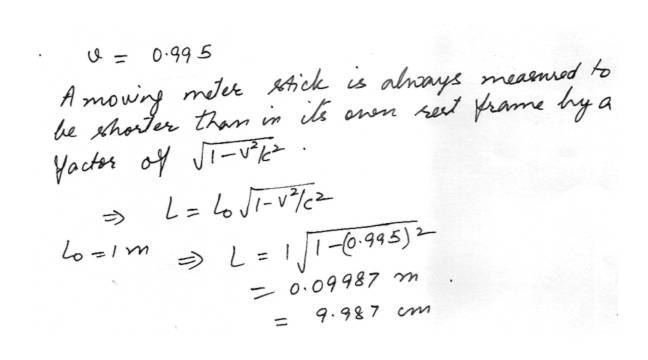 v = 0.995
A moving meter stick is always measured to
be shorter than in its own rest frame by a
factor of √1-v²/c² .
⇒ L = L₀ √1-v²/c²
L₀ = 1 m ⇒ L = 1 √1-(0.995)²
= 0.09987 m .
= 9.987 cm